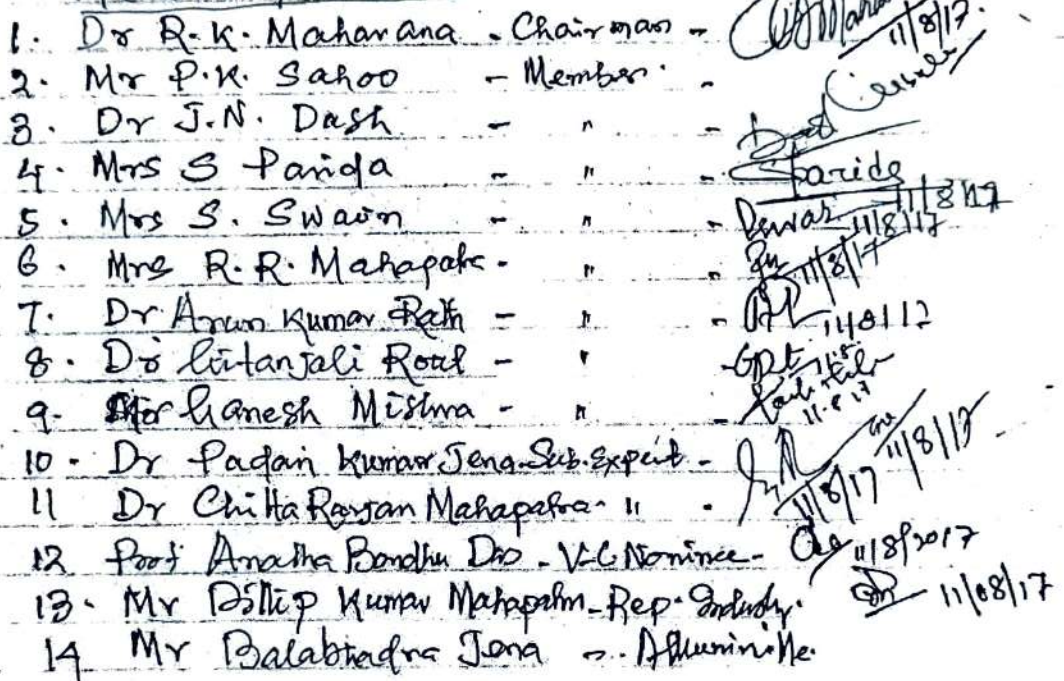 1. Dr R.K. Maharana - Chairman - 11/8/17.
2. Mr P.K. Sahoo - Member. -
3. Dr J.N. Dash - " - Dash
4. Mrs S Parida - " - SParida 11/8/17
5. Mrs S. Swain - " - 11/8/17
6. Mrs R.R. Mahapatra - " - 11/8/17
7. Dr Arun Kumar Rath - " - 11/8/17
8. Dr Gitanjali Rout - " - 11.8
9. Ganesh Mishra - " - 11.8.17
10. Dr Padan Kumar Jena. Sub. Expert - 11/8/17
11 Dr Chitta Ranjan Mahapatra - " - 11/8/17
12 Prof Anatha Bandhu Das - V-C Nominee - 11/8/2017
13. Mr Dillip Kumar Mahapatra - Rep. Industry. 11/08/17
14 Mr Balabhadra Jena -